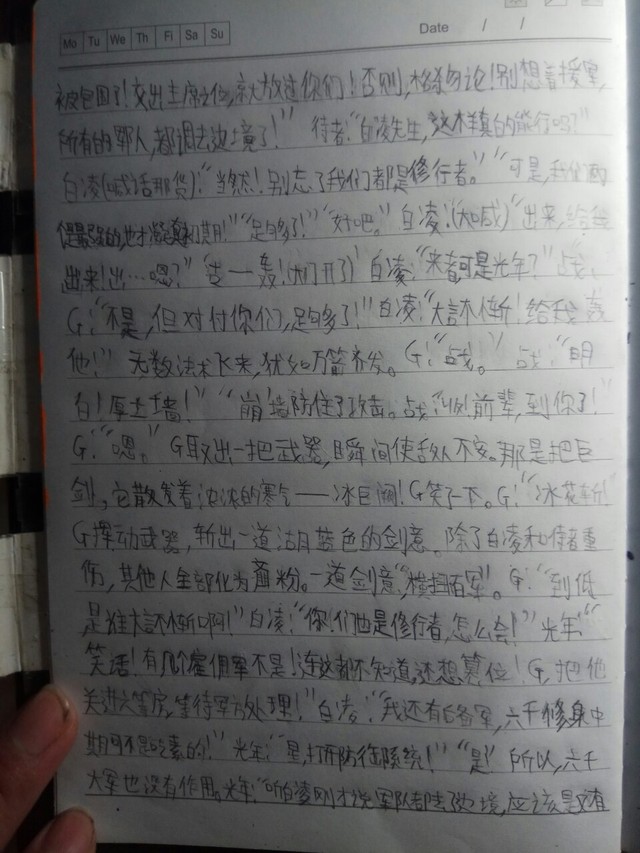 Mo Tu We Th Fr Sa Su
Date / /
被包围了!交出主席之位,就放过你们!否则,格杀勿论!别想着援军,
所有的军人,都调去边境了!” 侍者:“白凌先生,这样真的能行吗?”
白凌(喊话那货):“当然!别忘了我们都是修行者。”“可是,我们
的,也才 期!”“足够了!”“好吧。”白凌:(大喊)“出来,给我
出来!出…嗯?”“吉一轰!(大门开了)白凌:“来者可是光年?”战、
G:“不是,但对付你们,足够了!”白凌:“大言不惭!给我轰
他!” 无数法术飞来,犹如万箭齐发。G:“战。” 战:“明
白!厚土墙!” “崩”墙防住了攻击。战:“G前辈,到你了!”
G:“嗯。”G取出一把武器,瞬间使敌人不安。那是把巨
剑,它散发着浓浓的寒气——冰巨阙!G笑了一下。G:“冰花斩!
G挥动武器,斩出一道湖蓝色的剑意。除了白凌和侍者重
伤,其他人全部化为齑粉。一道剑意“横扫百军”。G:“到底
是谁大言不惭啊!”白凌:“你!们也是修行者,怎么会!”光年:“
笑话!有几个雇佣军不是!连这都不知道,还想篡位!G,把他
关进六等房,等待军方处理!”白凌:“我还有后备军,六千修身中
期可不是吃素的!”光年:“星,打开防御系统!”“是!”所以,六千
大军也没有作用。光年:“听白凌刚才说军队都去边境,应该是又有